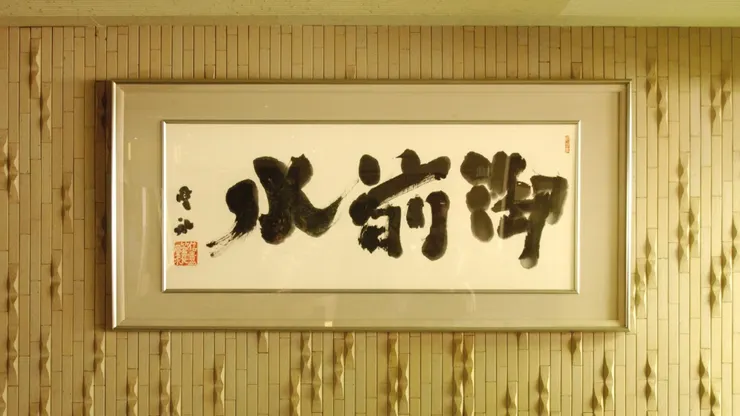 御前水